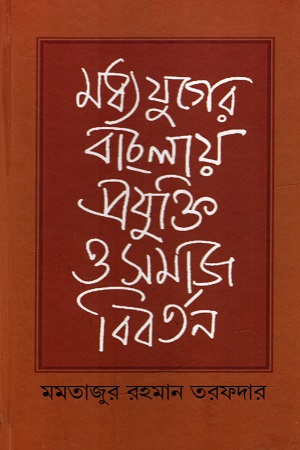 মধ্যযুগের
বাংলায়
প্রযুক্তি
ও সমাজ
বিবর্তন
মমতাজুর রহমান তরফদার